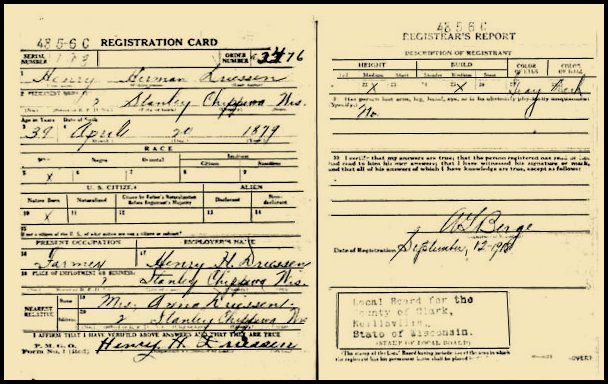 48-5-6 C REGISTRATION CARD
SERIAL NUMBER 183 ORDER NUMBER 3476
1 Henry Herman Driessen
2 PERMANENT HOME ADDRESS
2 Stanley Chippewa Wis.
Age in Years Date of Birth
39 April 20 1879
RACE
White Negro Oriental Indian
Citizen Noncitizen
X
U. S. CITIZEN ALIEN
Native Born Naturalized Citizen by Father's Naturalization Before Registrant's Majority Declarant Non-declarant
10 X
15
If not a citizen of the U. S., of what nation are you a citizen or subject?
PRESENT OCCUPATION EMPLOYER'S NAME
16 Farmer 17 Henry H. Driessen
18 PLACE OF EMPLOYMENT OR BUSINESS:
2 Stanley Chippewa Wis.
NEAREST RELATIVE Name 19 Mrs. Anna Driessen.
Address 20 2 Stanley Chippewa Wis
I AFFIRM THAT I HAVE VERIFIED ABOVE ANSWERS AND THAT THEY ARE TRUE
P. M. G. O.
Form No. 1 (Red) Henry H. Driessen
48 5-6 C
REGISTRAR'S REPORT
DESCRIPTION OF REGISTRANT
HEIGHT BUILD COLOR OF EYES COLOR OF HAIR
Tall Medium Short Slender Medium Stout
X X Gray
29 Has person lost arm, leg, hand, eye, or is he obviously physically disqualified?
(Specify.)
No.
30 I certify that my answers are true; that the person registered has read or has
had read to him his own answers; that I have witnessed his signature or mark,
and that all of his answers of which I have knowledge are true, except as follows:
Berge
Date of Registration September, 12-1918
Local Board for the
County of Clark,
Neillsville,
State of Wisconsin.
(STAMP OF LOCAL BOARD)
(The stamp of the Local Board having jurisdiction of the area in which
the registrant has his permanent home shall be
(OVER)